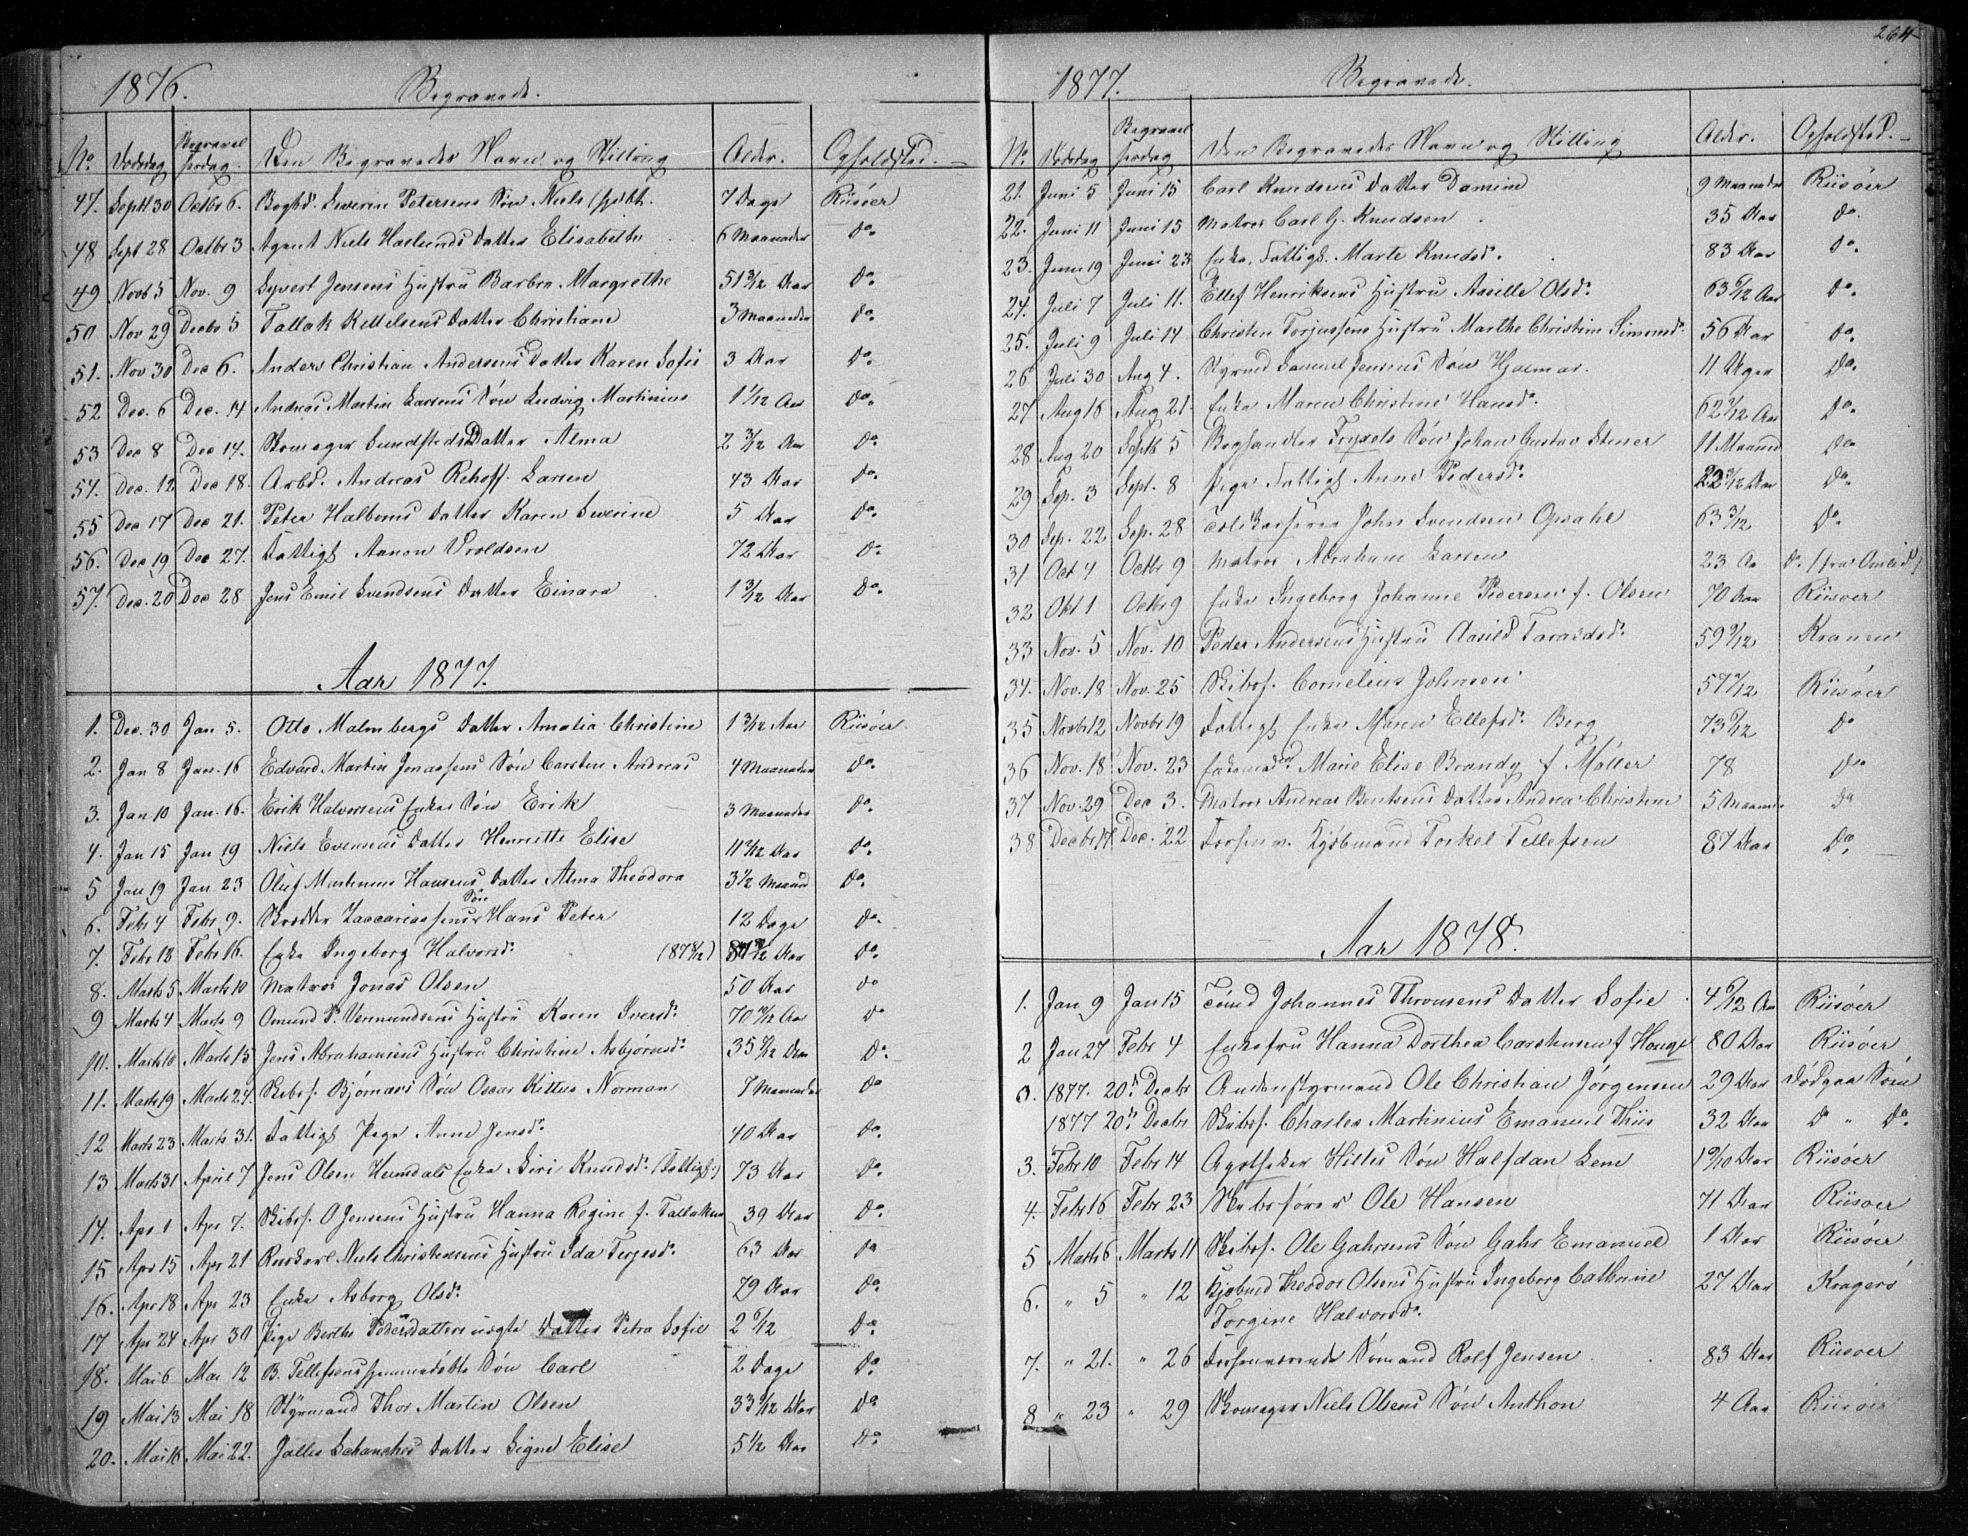 264
1876. Begravede.
No Dødsdag Begravelsesdag. Den Begravedes Navn og Stilling Alder. Opholdsted.
47. Septb 30 Octbr 6. Bogbd. Severin Petersens Søn Niels 7 Dage Riisøer
48 Sept 28 Octbr 3 Agent Niels Haslunds Datter Elisabeth 6 Maaneder Do.
49 Novb 5 Nov. 9 Syvert Jensens Hustru Barbra Margrethe 51 3/12 Aar Do.
50 Nov 29 Decbr 5 Tallak Kittelsens Datter Christiane 3 Maaneder Do.
51. Nov 30 Dec 6. Anders Christian Andersens Datter Karen Sofie 3 Aar Do.
52 Dec. 6 Dec. 14 Andreas Martin Larsens Søn Ludvig Martinius 1 1/12 Aar Do.
53 Dec 8 Dec 14. Skomager Lundsteds Datter Alma 2 3/12 Aar Do
54. Dec. 12 Dec 18. Arbd. Andreas Rehoff Larsen 43 Aar Do.
55 Dec 17 Dec 21. Peter Halborns Datter Karen Severine 5 Aar Do.
56. Dec 19 Dec 27. Fattigl Aanon Vroldsen 72 Aar Do.
57. Dec. 20 Dec 28 Jens Emil Svendsens Datter Einara 1 3/12 Aar Do.
Aar 1877.
1. Dec. 30 Jan 5. Otto Malmbergs Datter Amalia Christine 1 3/12 Aar Riisøer.
2. Jan 8 Jan. 16 Edvard Martin Jonassens Søn Carsten Andreas 4 Maaneder Do.
3. Jan 10 Jan. 16. Erik Halvorsens Enkes Søn Erik 3 Maaneder Do.
4. Jan 15 Jan 19 Niels Evensens Datter Henriette Elise 11 3/12 Aar Do.
5 Jan 19 Jan. 23 Oluf Martinius Hansens Datter Alma Theodora 3 1/2 Maaned Do.
6. Febr 4 Febr 9. Brødker Zaccariassens Søn Hans Peter 12 Dage Do.
7. Febr 12 Febr 16. Enke Ingeborg Halvorsd. (87 8/12) 87 8/12 Aar Do.
8. Marts 5 Marts 10 Matros Jonas Olsen 50 Aar Do
9 Marts 4 Marts 9 Omund P. Vermundsens Hustru Karen Iversd. 70 9/12 Aar Do
10. Marts 10 Marts 15 Jens Abrahamsens Hustru Christine Asbjørnsd. 35 9/12 Aar Do.
11. Marts 19 Marts 24. Skibsf. Bjørnars Søn Oscar Kittus Norman 7 Maaneder Do
12 Marts 23 Marts 31. Fattigl Pige Anne Jensd. 40 Aar Do.
13 Marts 31 April 7 Jens Olsen Humdals Enke Siri Knudsd. (Fattigl.) 73 Aar Do.
14. Apr 1 Apr 7. Skibsf. O Jensens Hustru Hanna Regine f. Tallaksen 39 Aar Do.
15 Apr 15 Apr 21 Ruskarl Niels Christensens Hustru Ida Terjesd. 63 Aar Do
16. Apr 18 Apr 23 Enke Asborg Olsd. 79 Aar Do.
17 Apr 24 Apr 30 Pige Berthe Pedersdatters uægte Datter Petra Sofie 2 6/12 Do.
18. Mai 6 Mai 12 B. Tellefsens hjemmedøbte Søn Carl 2 Dage Do.
19 Mai 13 Mai 18 Styrmand Thor Martin Olsen 33 9/12 Aar Do
20. Mai 16 Mai 22. Jalles Schanches Datter Signe Elise 5 1/2 Aar Do.
1877. Begravede.
No. Dødsdag Begravelsesdag Den Begravedes Navn og Stilling Alder. Opholdsted.
21. Juni 5 Juni 15 Carl Knudsens Datter Damine 9 Maaneder Riisøer
22. Juni 11 Juni 15 Matros Carl G. Knudsen 35 Aar do.
23. Juni 19 Juni 23 Enke, Fattigl. Marte Knudsd. 83 Aar Do.
24. Juli 7 Juli 11. Ellef Henriksens Hustru Aasille Olsd. 63 9/12 Aar Do.
25. Juli 9 Juli 14 Christen Torjussens Hustru Marthe Christine Simonsd. 56 Aar Do.
26 Juli 30 Aug 4. Styrmd Samuel Jensens Søn Hjalmar. 11 Uger Do.
27 Aug 16 Aug 21. Enke Maren Christine Hansd. 62 7/12 Aar Do.
28 Aug 20 Septb 5 Boghandler Fryxels Søn Johan Gustav Stener 11 Maaned Do
29 Sep. 3 Sept. 8 Pige Fattigl Anne Pedersd. 22 3/12 Aar Do.
30 Sep. 22 Sep. 28 Toldkasserer John Svendsen Opsahl 63 3/12 Do
31 Oct 4 Octbr 9 Matros Abraham Larsen 23 Aa Do. (fra Omlid)
32 Okt 1 Octbr 9 Enke Ingeborg Johanne Pedersen f. Olsen 70 Aar Riisøer
33 Nov. 5 Nov. 10 Peder Andersens Hustru Aasild Taraldsd. 59 9/12 Kranen
34. Nov. 18 Nov. 25 Skibsf. Cornelius Johnsen 57 7/12 Riisøer
35 Novbr 12 Novbr 19 Fattigl Enke Maren Ellefsd. Berg 73 9/12 Do
36 Nov. 18 Nov. 23 Enkemad. Marie Elise Brandy f Møller 78 Do
37 Nov. 29 Dec 3. Matros Andreas Bentsens Datter Andrea Christine 5 Maaneder Do
38 Decbr 17 Dec. 22 Forhenv. Kjøbmand Torkel Tellefsen 87 Aar Do.
Aar 1878.
1. Jan 9 Jan 15 Tømd Johannes Thronsens Datter Sofie 4 9/12 Aar Riisøer
2 Jan 27 Febr 4 Enkefru Hanna Dorthea Carstensen f Houge 80 Aar Riisøer
0. 1877. 20de Decbr Andenstyrmand Ole Christian Jørgensen 29 Aar Nødgaa Søen
1877 20de Decbr Skibsf. Charles Martinius Emanuel Thiis 32 Aar Do " Do.
3. Febr 10 Febr 14 Apotheker Hilles Søn Halfdan Lem 1 9/10 Aar Riisøer
4. Febr 16 Febr 23 Skibsfører Ole Hansen 71 Aar Riisøer
5 Marts 6 Marts 11 Skibsf. Ole Gahrsens Søn Gahr Emanuel 1 Aar Riisøer
6. " 5 " 12 Kjøbmd Theodor Olsens Hustru Ingeborg Cathrine 27 Aar Kragerø
Torgine Halvorsd.
7. " 21. " 26 Forhenværende Sømand Rolf Jensen 83 Aar Riisøer
8 " 23 " 29 Skomager Niels Olsens Søn Anthon 4 Aar Riisøer